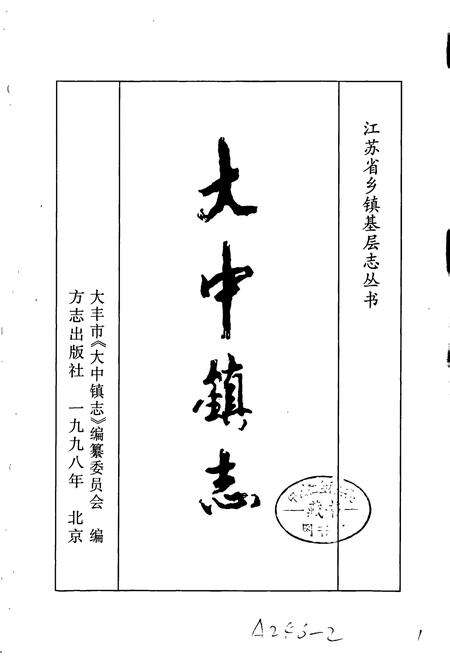 江苏省乡镇基层志丛书
大中镇志
大丰市《大中镇志》编纂委员会 编
方志出版社 一九九八年 北京
1